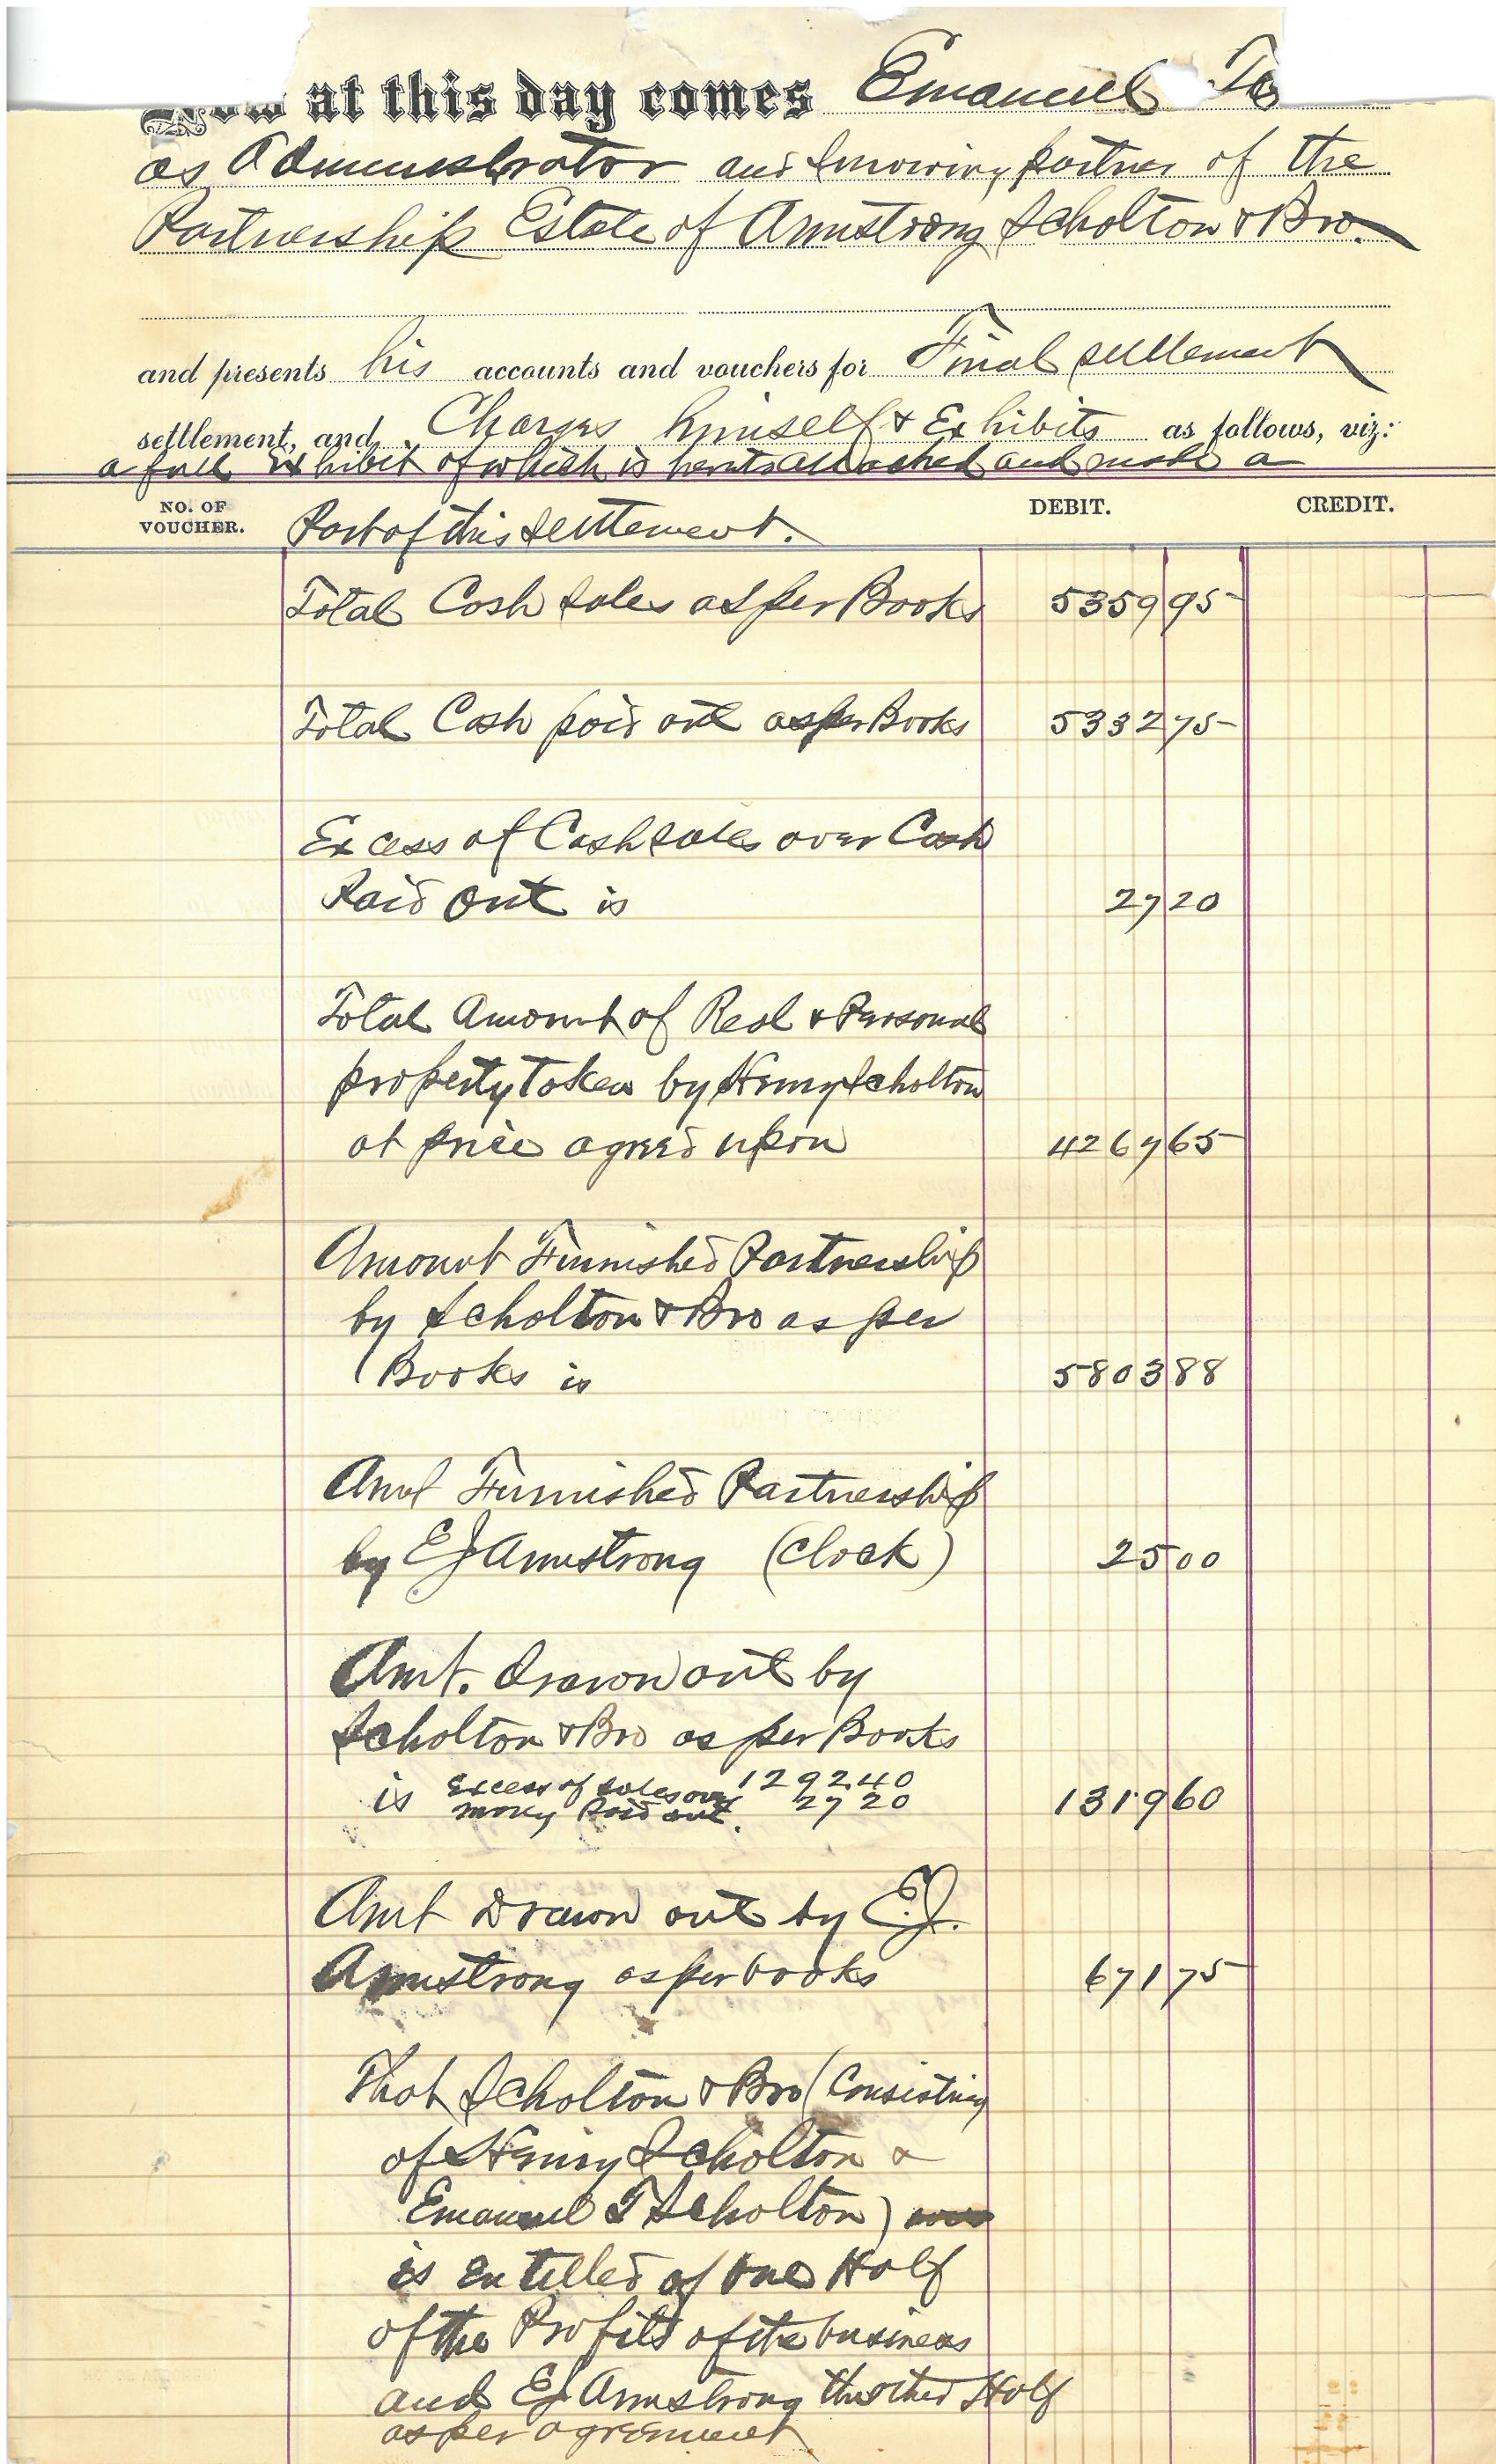 Now at this day comes Emanuel
as Administrator and surviving partner of the
Partnership Estate of Armstrong Scholton & Bro.
and presents his accounts and vouchers for Final settlement
settlement, and Charges himself & Exhibits as follows, viz:
a full Exhibit of which is hereto attached and made a
NO. OF VOUCHER. Part of this settlement. DEBIT. CREDIT.
Total Cash Sales as per Books 5359 95
Total Cash paid out as per Books 5332 75
Excess of Cash sales over Cash
Paid Out is 27 20
Total Amount of Real & Personal
property taken by Henry Scholton
at price agreed upon 4267 65
Amount Furnished Partnership
by Scholton & Bro as per
Books is 5803 88
Amt Furnished Partnership
by EJ Armstrong (Clock) 25 00
Amt. drawn out by
Scholton & Bro as per Books
is Excess of sales over 1292 40
money Paid out. 27 20 1319 60
Amt Drawn out by E.J.
Armstrong as per books 671 75
That Scholton & Bro (Consisting
of Henry Scholton &
Emanuel T Scholton)
is entitled of one Half
of the Profits of the business
and EJ Armstrong the other Half
as per agreement